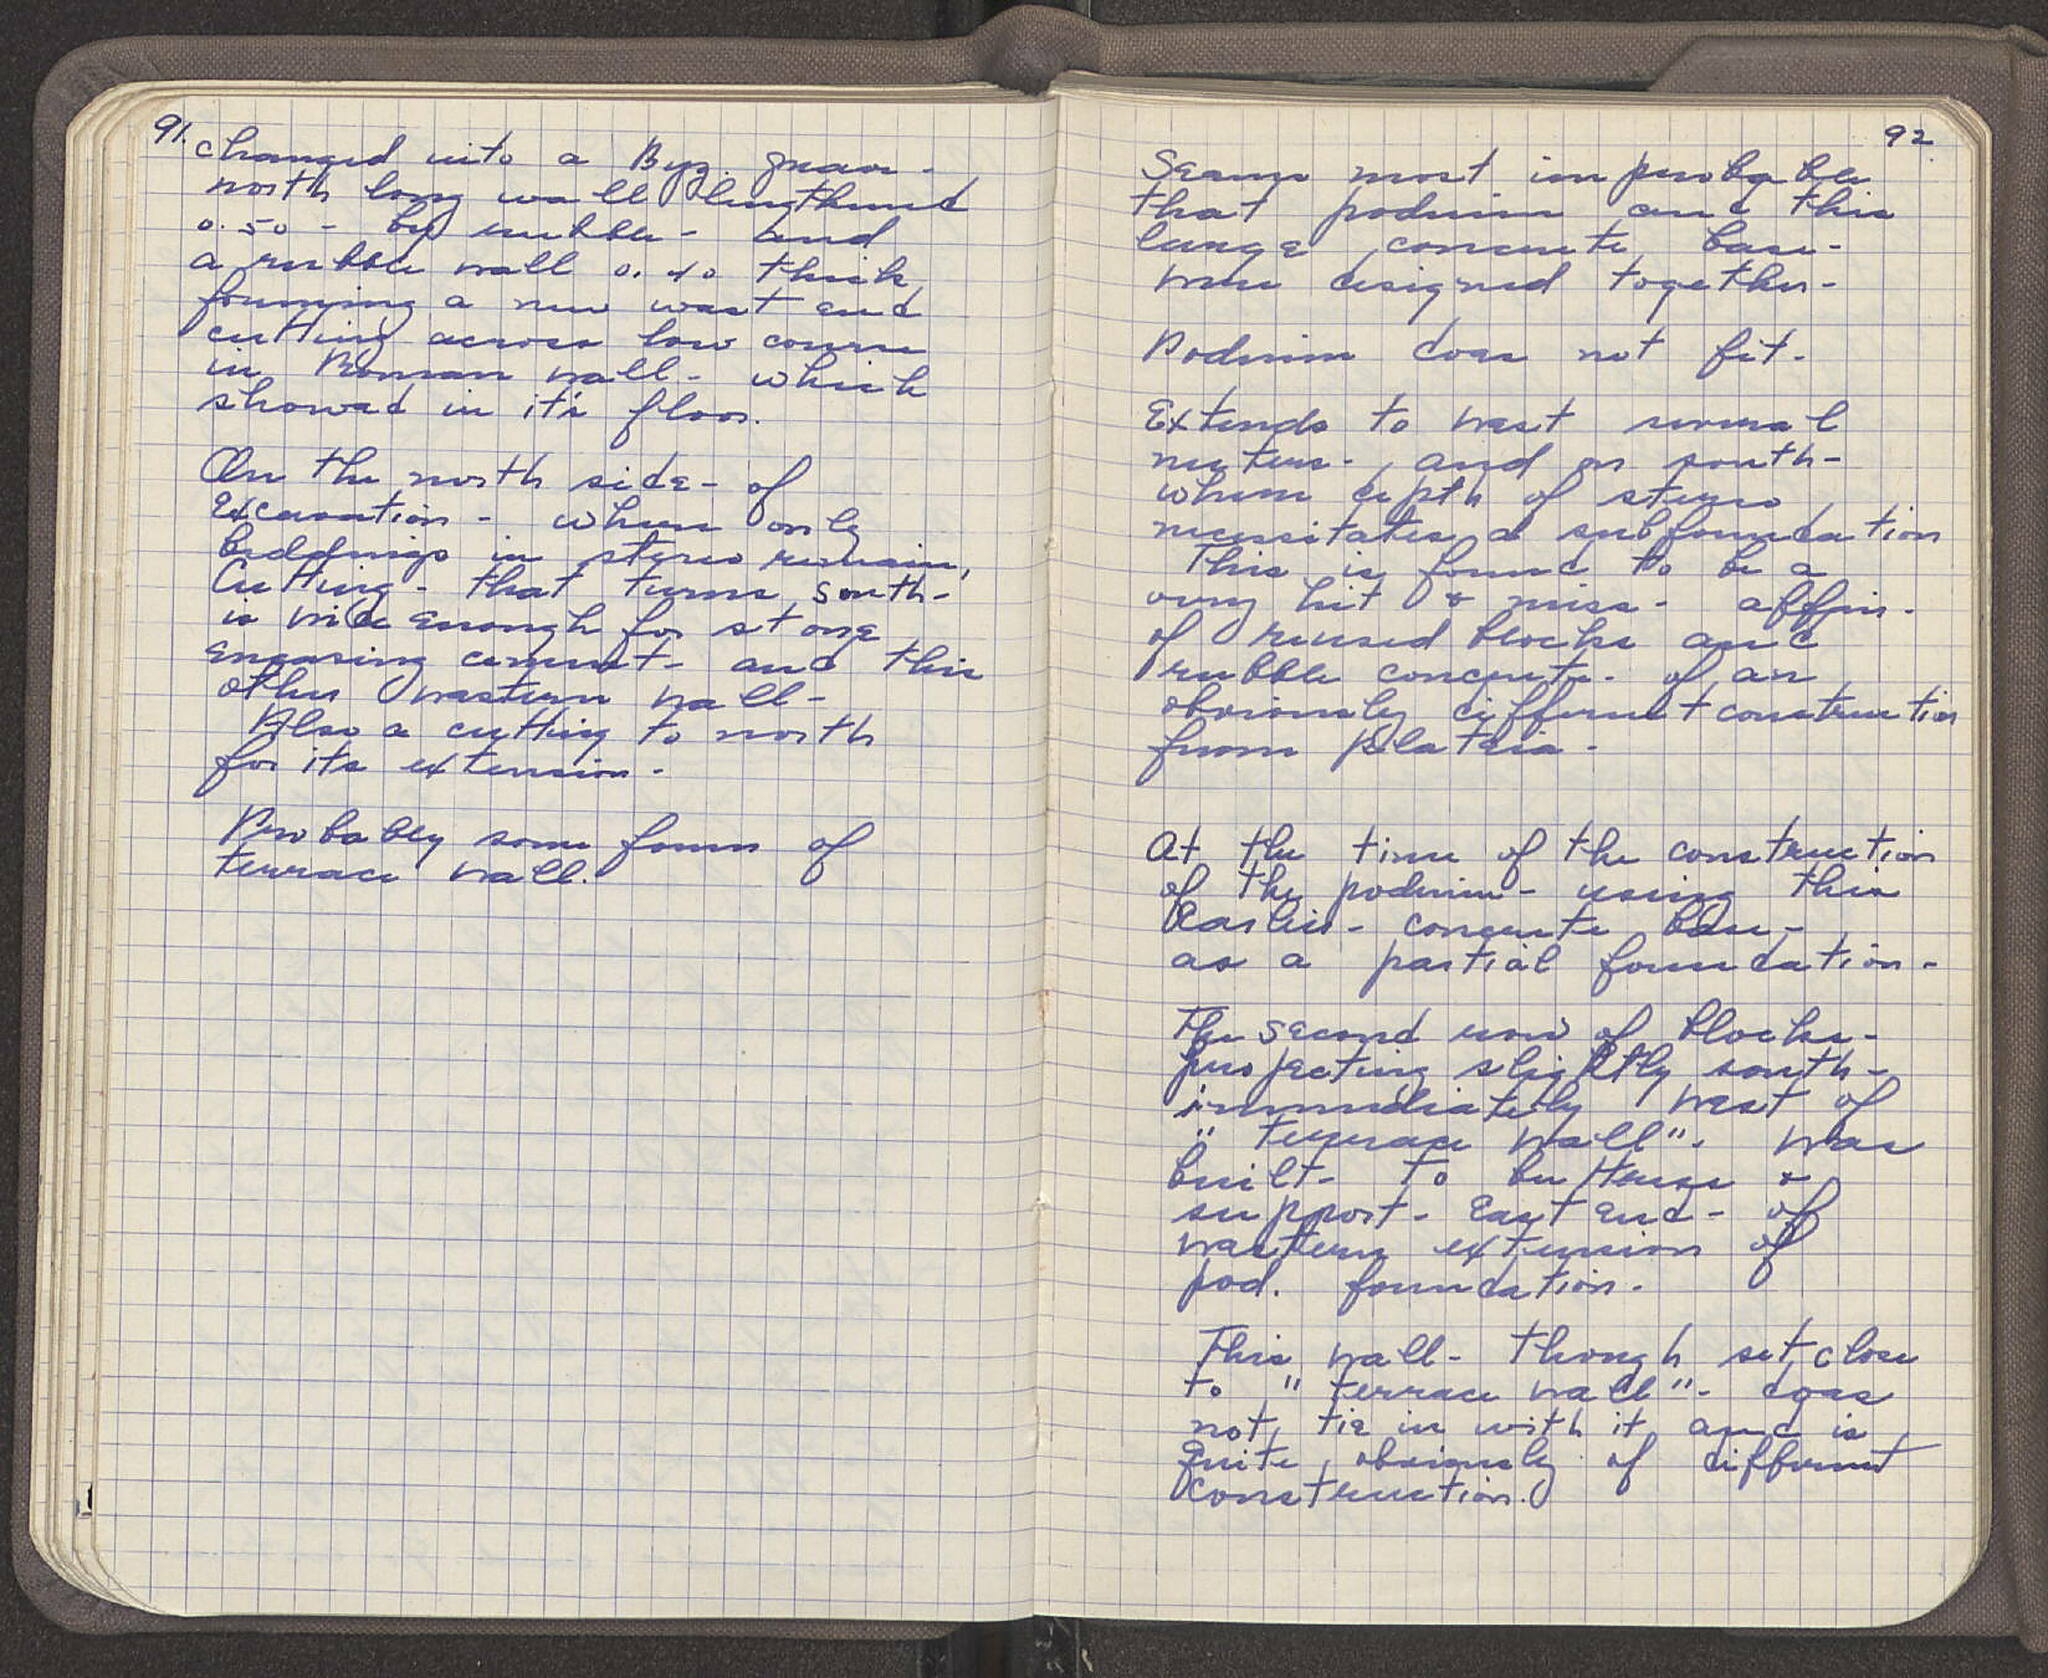 91.
changed into a Byz. grave -
north long wall lengthened
0.50 - by rubble - and
a rubble wall 0.40 thick
forming a new west end
cutting across low course
in Roman wall - which
showed in it's floor.
On the north side - of
excavation - where only
beddings in stereo remain,
Cutting - that turns south -
is wide enough for stone
encasing cement - and this
other western wall -
Also a cutting to north
for its extension -
Probably some form of
terrace wall.
92.
Seems most improbable
that podium and this
large concrete base -
were designed together -
Podium does not fit -
Extends to west several
meters - and on south -
where depth of stereo
necessitates a subfoundation
This is found to be a
very hit & miss - affair -
of reused blocks and
rubble concrete - of an
obviously different construction
from plateia -
At the time of the construction
of the podium - using this
earlier - concrete base -
as a partial foundation -
The second row of blocks -
projecting slightly south -
immediately west of
"terrace wall" - was
built - to buttress &
support - east end - of
western extension of
pod. foundation -
This wall - though set close
to "terrace wall" - does
not tie in with it and is
quite obviously of different
construction.